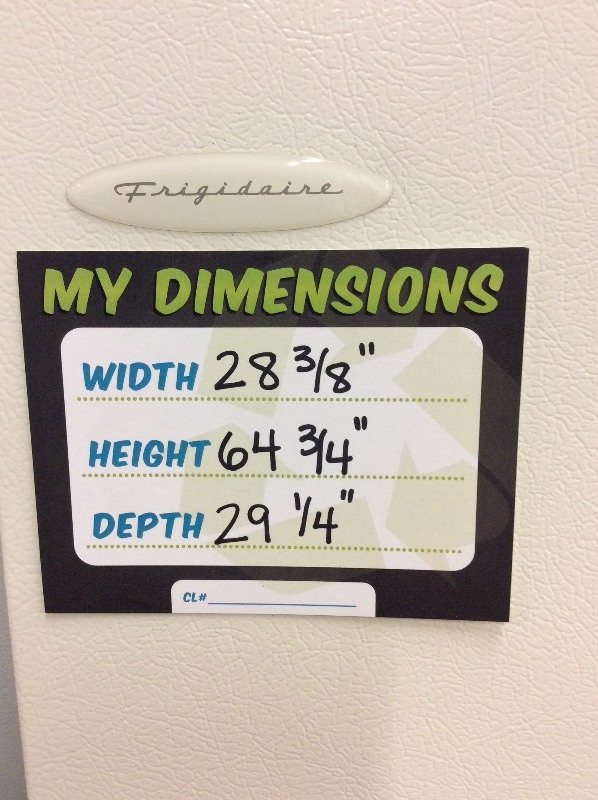 Frigidaire
MY DIMENSIONS
WIDTH 28 3/8"
HEIGHT 64 3/4"
DEPTH 29 1/4"
CL#